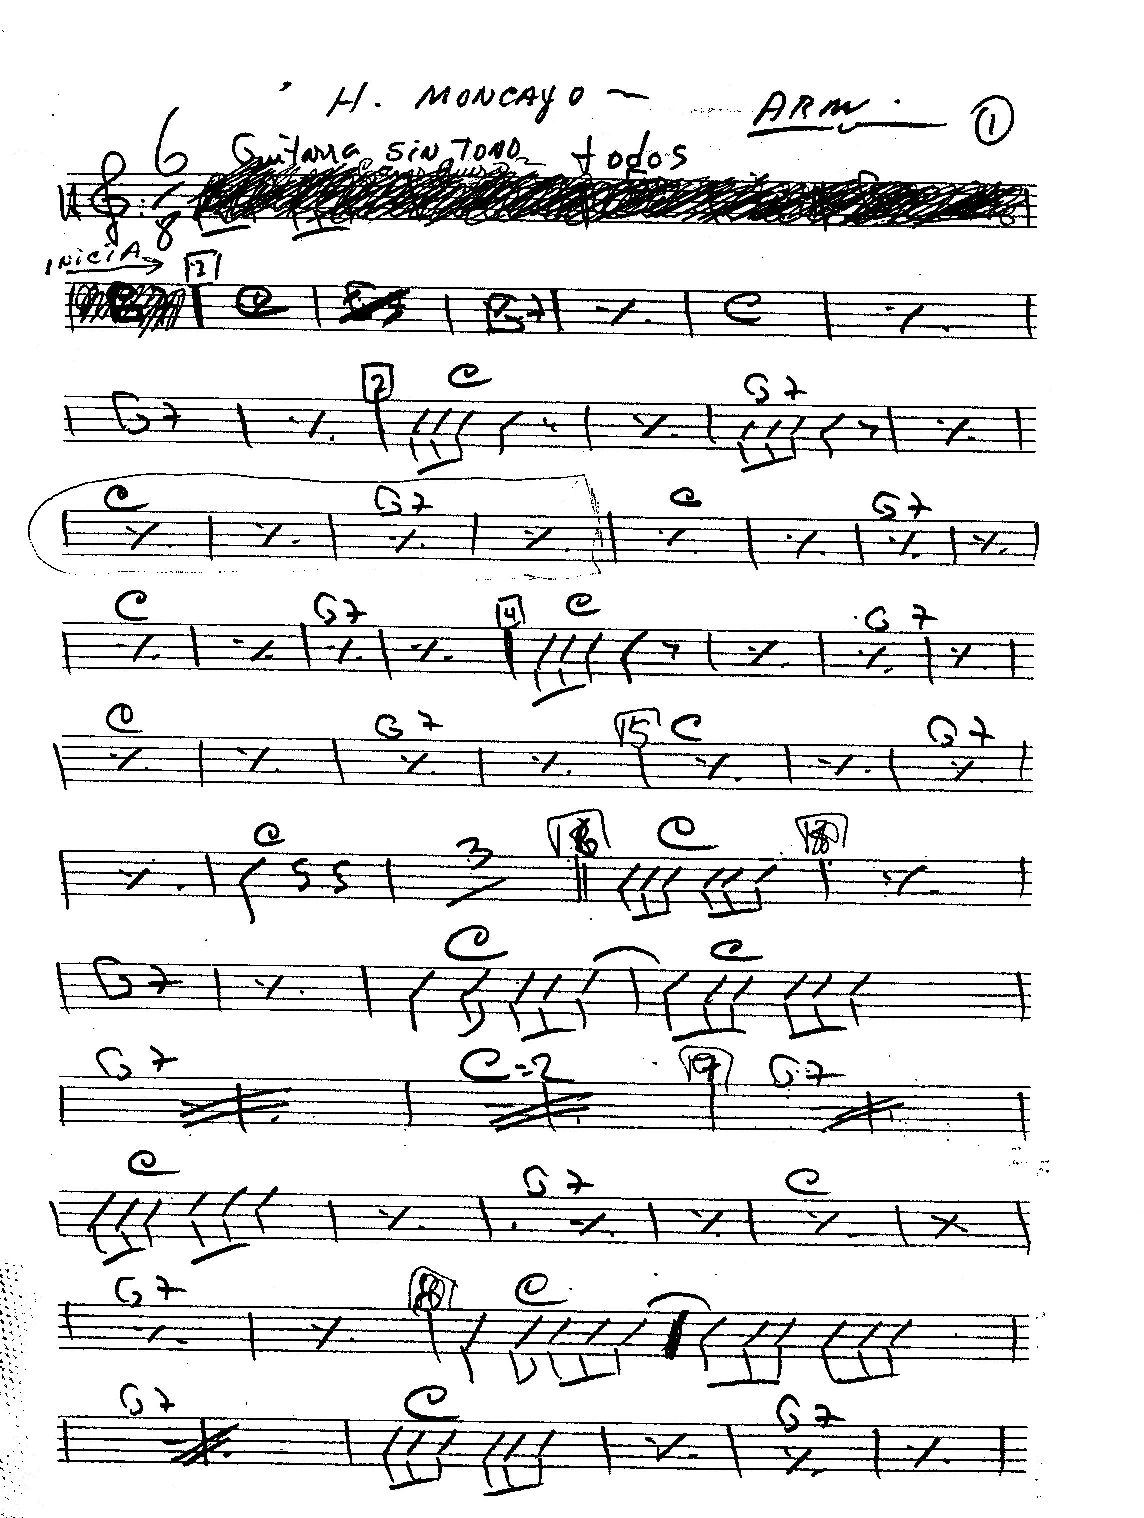 H. MONCAYO — ARM. 1
6 Guitarra SIN TONO todos
8
INICIA 2
C G7 C
G7 2 C G7
C G7 C G7
C G7 4 C G7
C G7 15 C G7
C 3 C
G7 C C
G7 C=2 G7
C G7 C
G7 8 C
G7 C G7